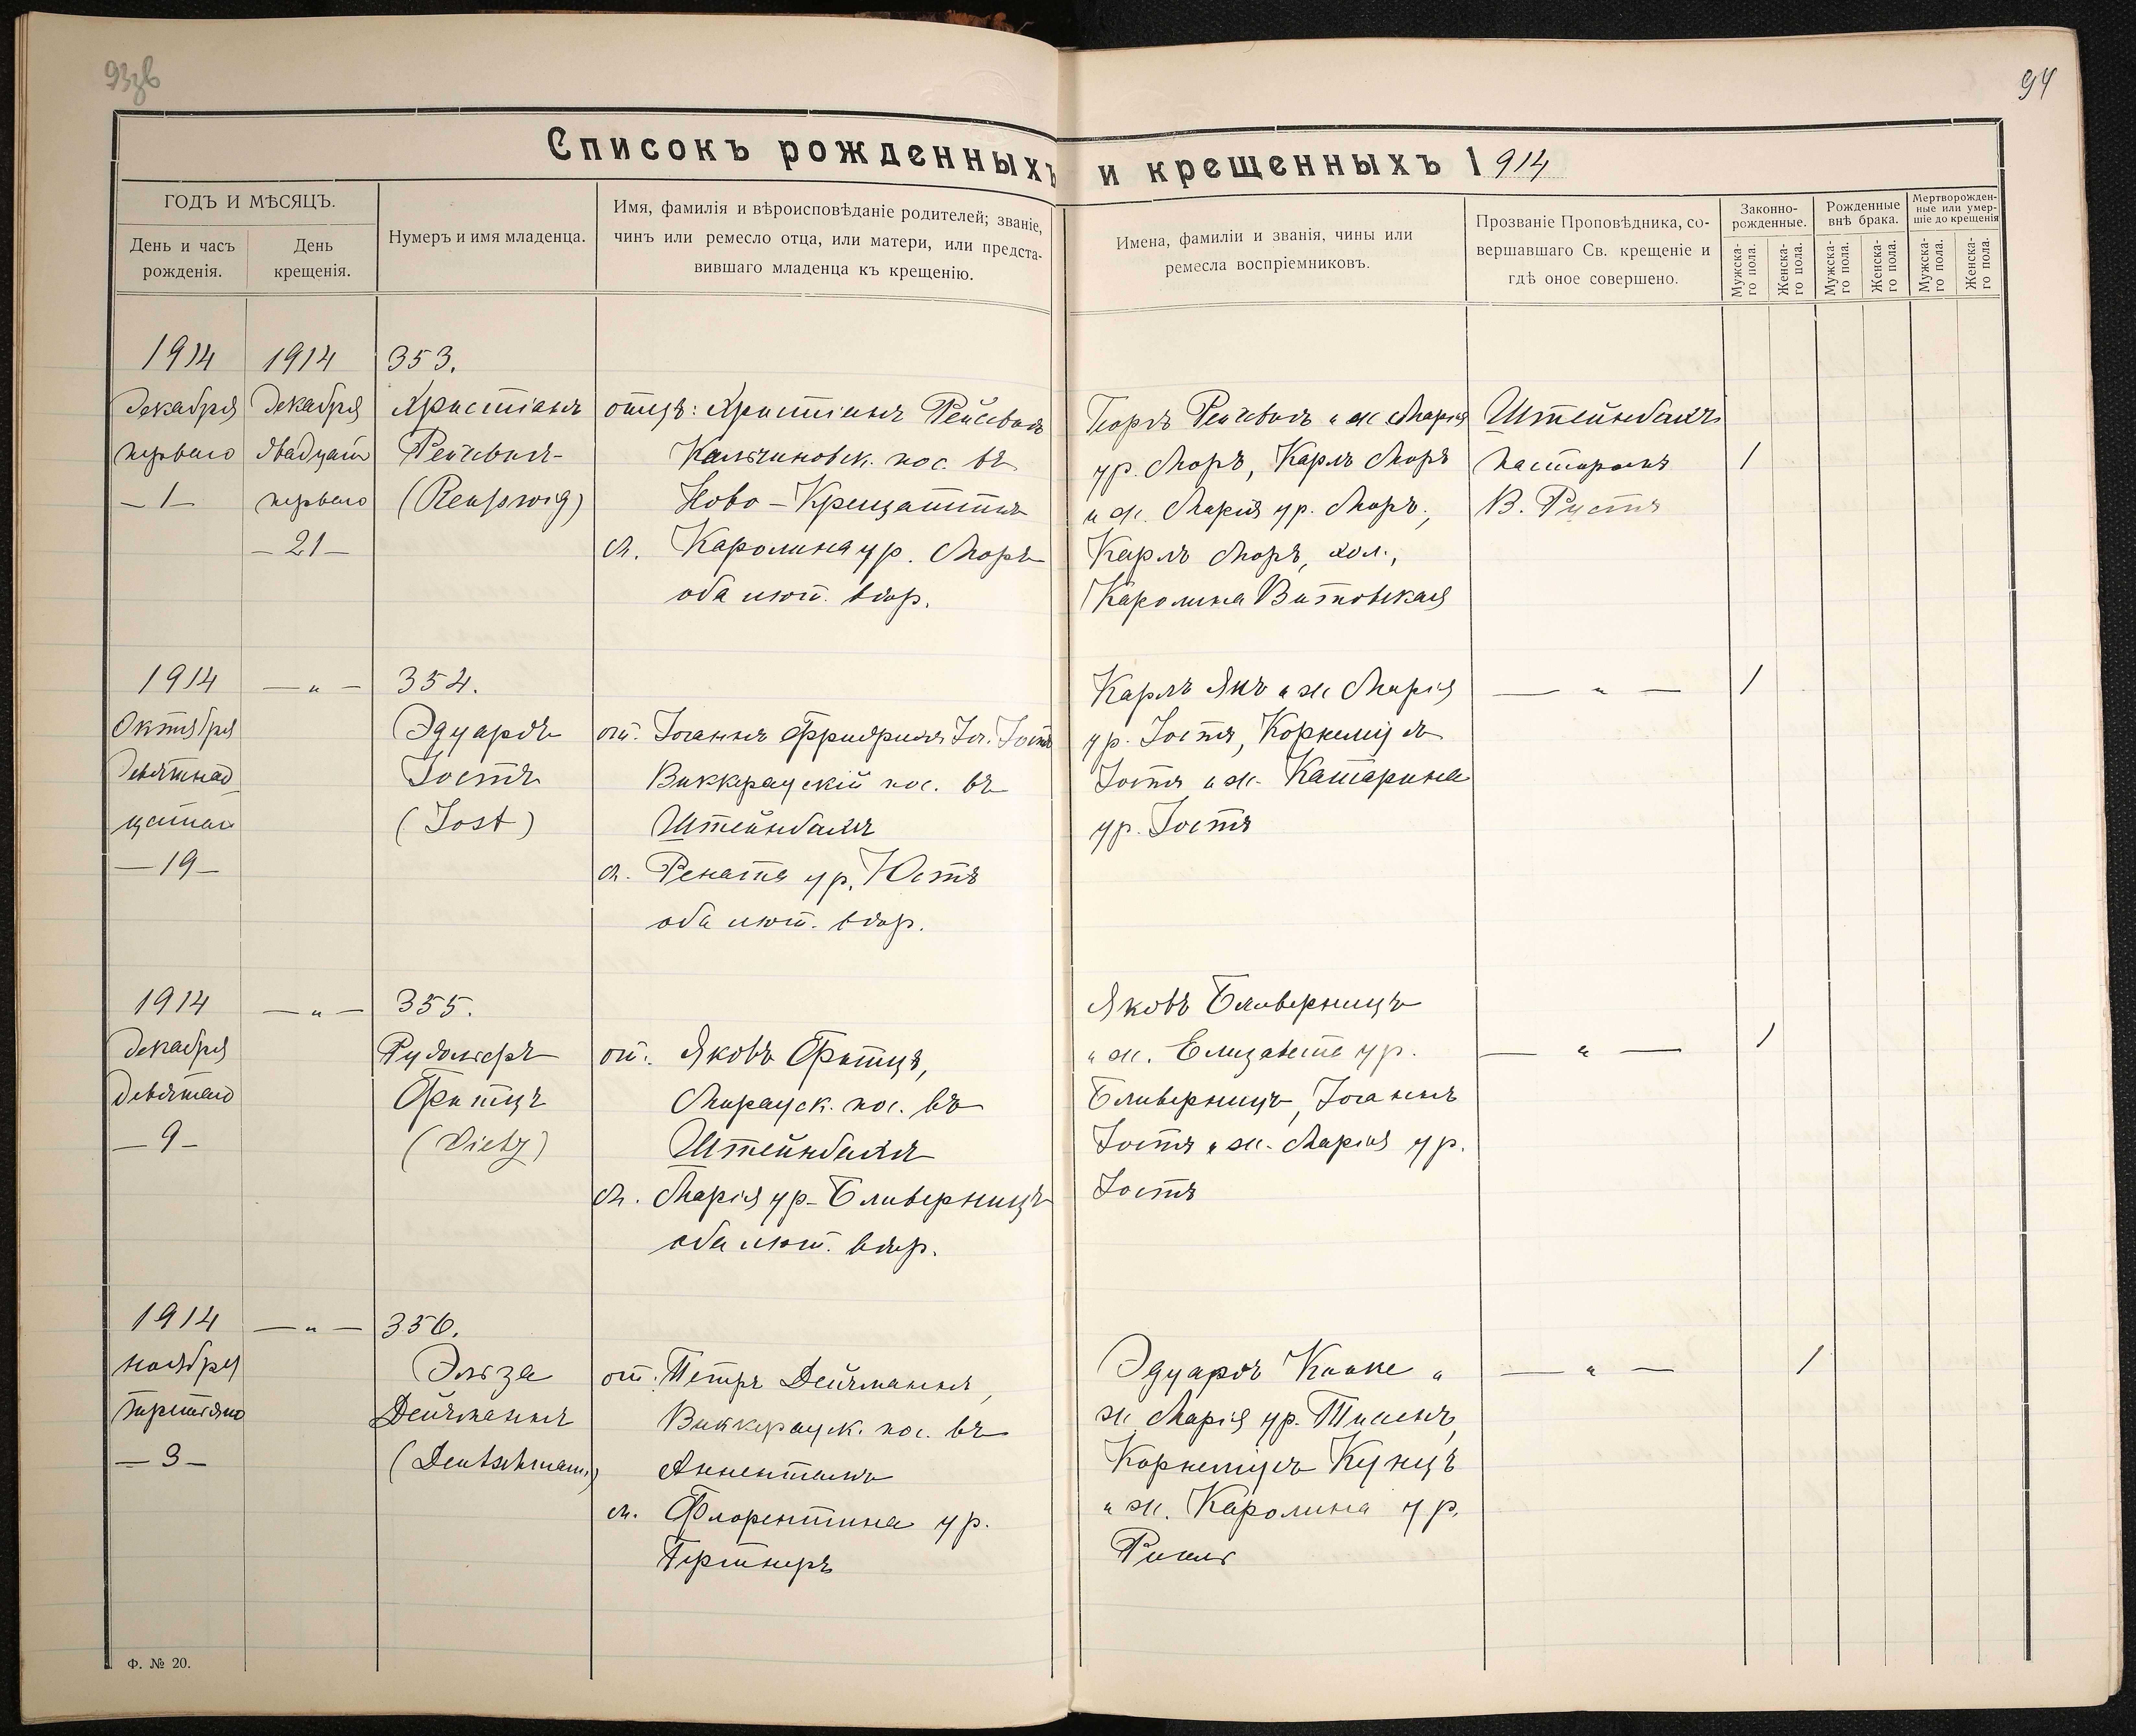 94
Списокъ рожденныхъ и крещенныхъ 1914
ГОДЪ И МѢСЯЦЪ.
День и часъ рожденія.
День крещенія.
Нумеръ и имя младенца.
Имя, фамилія и вѣроисповѣданіе родителей; званіе,
чинъ или ремесло отца, или матери, или предста-
вившаго младенца къ крещенію.
Имена, фамиліи и званія, чины или
ремесла воспріемниковъ.
Прозваніе Проповѣдника, со-
вершавшаго Св. крещеніе и
гдѣ оное совершено.
Законно-
рожденные.
Рожденные
внѣ брака.
Мертворожден-
ные или умер-
шіе до крещенія
Мужска-
го пола.
Женска-
го пола.
Мужска-
го пола.
Женска-
го пола.
Мужска-
го пола.
Женска-
го пола.
1914
Декабря
перваго
-1-
1914
Декабря
двадцать
перваго
-21-
353.
Христіанъ
Рейсвихъ
отецъ: Христіанъ
Кальчиновск. пос. въ
Ново-Крещатткъ
м. Каролина ур. Моръ
оба лют. вѣр.
Георгъ и ж Марія
ур. Моръ, Карлъ Моръ
и ж. Марія ур. Моръ,
Карлъ Моръ, хол.,
Каролина Витовская
Штейнбахъ
пасторомъ
В. Рустъ
1
1914
Октября
Девятнад
цатаго
-19-
— „ —
354.
Эдуардъ
Іостъ
(Jost)
от. Іоганнъ Фридрихъ Іог. Іостъ
Виккераускій пос. въ
Штейнбахъ
м. Рената ур. Юстъ
оба лют. вѣр.
Карлъ Янъ и ж Марія
ур. Іостъ, Корнеліусъ
Іостъ и ж. Катарина
ур. Іостъ
— „ —
1
1914
Декабря
Девятаго
-9-
— „ —
355.
Рудольфъ
Фитцъ
(Vietz)
от. Яковъ Фитцъ,
Мирауск. пос. въ
Штейнбахъ
м. Марія ур. Бливерницъ
оба лют. вѣр.
Яковъ Бливерницъ
и ж. Елизавета ур.
Бливерницъ, Іоганнъ
Іостъ и ж. Марія ур.
Іостъ
— „ —
1
1914
ноября
третьяго
-3-
— „ —
356.
Эльза
Дейчманнъ
(Deutschmann)
от. Петръ Дейчманнъ,
Виккерауск. пос. въ
Анненталь
м. Флорентина ур.
Гертнеръ
Эдуардъ и
ж. Марія ур.
Корнеліусъ Кунцъ
и ж. Каролина ур.
— „ —
1
Ф. № 20.